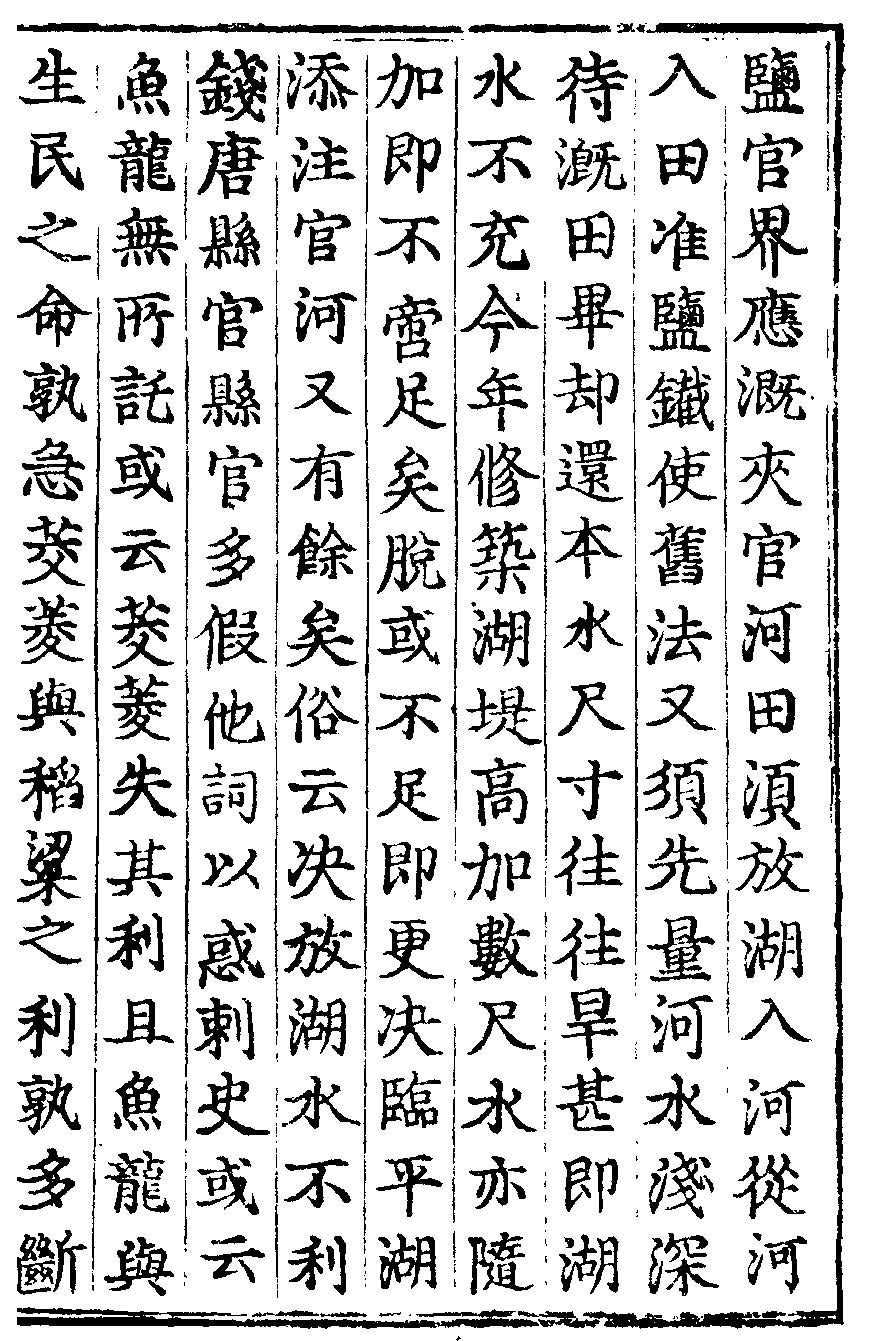 鹽官界應溉夾官河田湏放湖入河從河
入田准鹽鐵使舊法又須先量河水淺深
待溉田畢却還本水尺寸往往旱甚即湖
水不充今年修築湖堤高加數尺水亦隨
加即不啻足矣脫或不足即更决臨平湖
添注官河又有餘矣俗云决放湖水不利
錢唐縣官縣官多假他詞以惑刺史或云
魚龍無所託或云茭菱失其利且魚龍與
生民之命孰急茭菱與稻粱之利孰多斷